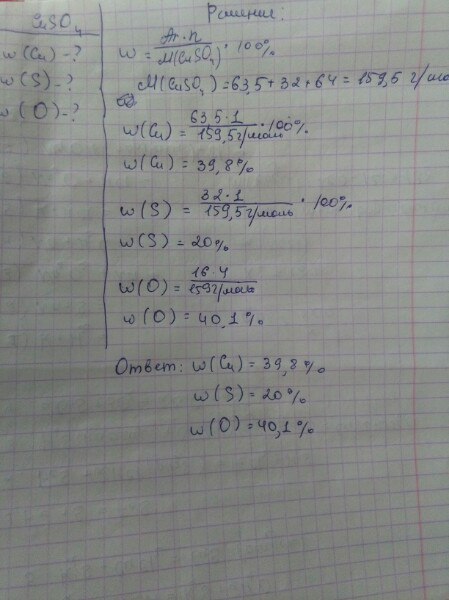 CuSO₄
w(Cu) - ?
w(S) - ?
w(O) - ?
Решение:
w = Ar·n / M(CuSO₄) · 100%
M(CuSO₄) = 63,5 + 32 + 64 = 159,5 г/моль
w(Cu) = 63 5 · 1 / 159,5 г/моль · 100%
w(Cu) = 39,8%
w(S) = 32 · 1 / 159,5 г/моль · 100%
w(S) = 20%
w(O) = 16 · 4 / 159 г/моль
w(O) = 40,1%
Ответ: w(Cu) = 39,8%
w(S) = 20%
w(O) = 40,1%